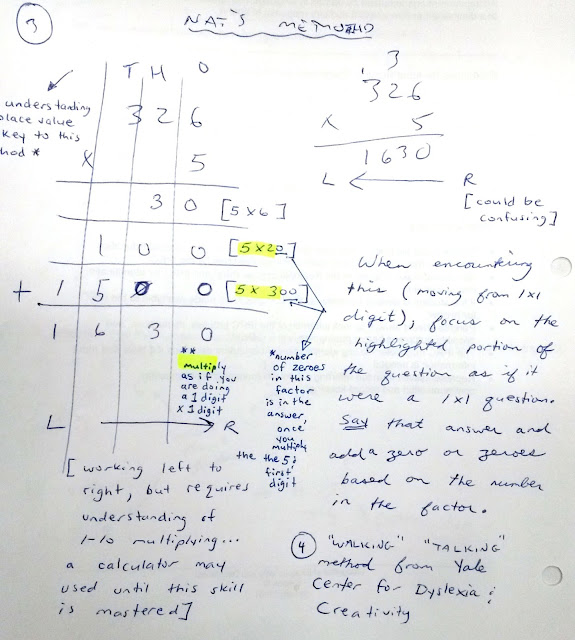 3
NAT'S METHOD
T H O
understanding
place value
key to this
hod *
3 2 6
X 5
3 0 [5x6]
1 0 0 [5x20]
+ 1 5 0 0 [5x300]
1 6 3 0
L → R
**
multiply
as if you
are doing
a 1 digit
x 1 digit
*number
of zeroes
in this
factor
is in the
answer,
once
you
multiply
the the 5 &
first
digit
[working left to
right, but requires
understanding of
1-10 multiplying...
a calculator may
used until this skill
is mastered]
1 3
326
X 5
1630
L ← R
[could be
confusing]
When encountering
this (moving from 1x1
digit), focus on the
highlighted portion of
the question as if it
were a 1x1 question.
Say that answer and
add a zero or zeroes
based on the number
in the factor.
4 "WALKING" "TALKING"
method from Yale
Center for Dyslexia &
Creativity